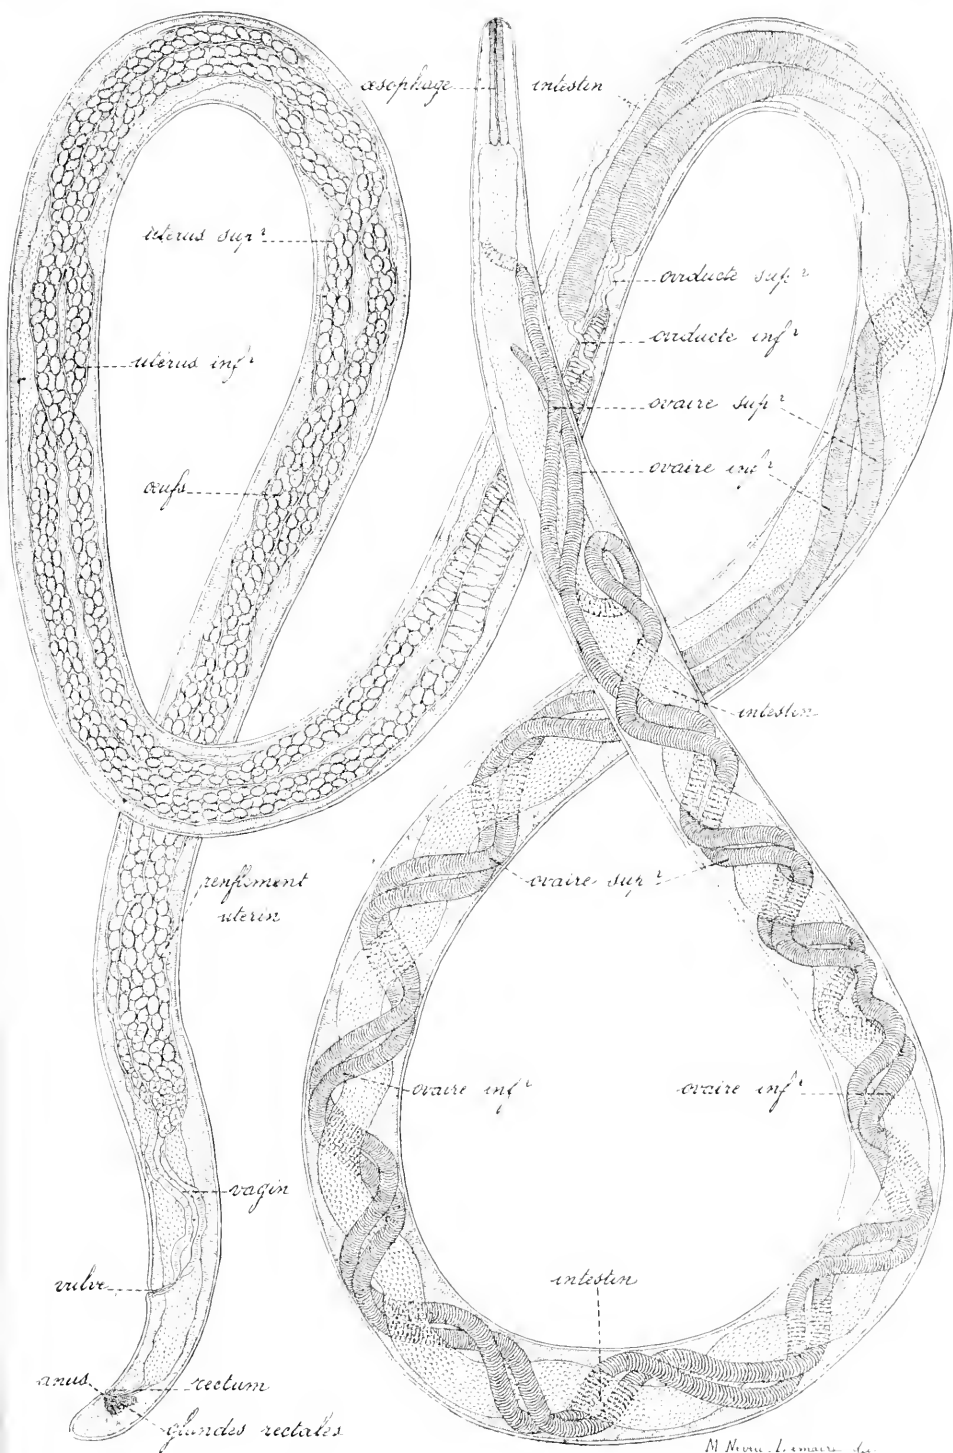 œsophage
intestin
utérus supr
oviducte supr
utérus infr
oviducte infr
ovaire supr
œufs
ovaire infr
intestin
renflement
utérin
ovaire supr
ovaire infr
ovaire infr
vagin
vulve
intestin
anus
rectum
glandes rectales
M. Neveu-Lemaire del.